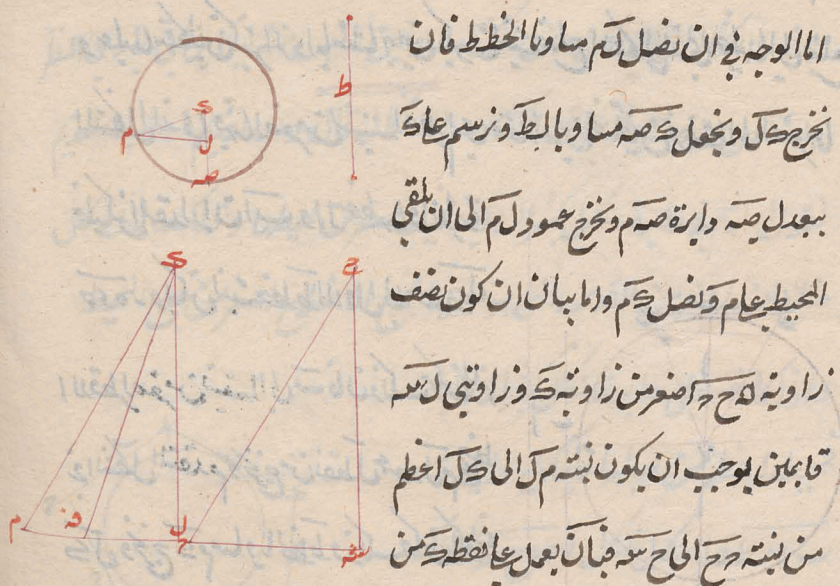 اما الوجه في ان نصل كم مساويا لخط ط فان
نخرج كل ونجعل ك صه مساويا لط ونرسم على ك
ببعد ل صه دايرة صه م ونخرج عمود ل م الى ان يلقي
المحيط على م ونصل ك م واما بيان ان كون نصف
زاوية ح اصغر من زاوية ك وزاويتي ل سه
قايمين يوجب ان يكون نسبة م ل الى ك ل اعظم
من نسبة ح الى ح سه فبان يعمل على نقطة ك من
ط
ك
م
ل
صه
ك
ح
م
ف
ل
سه